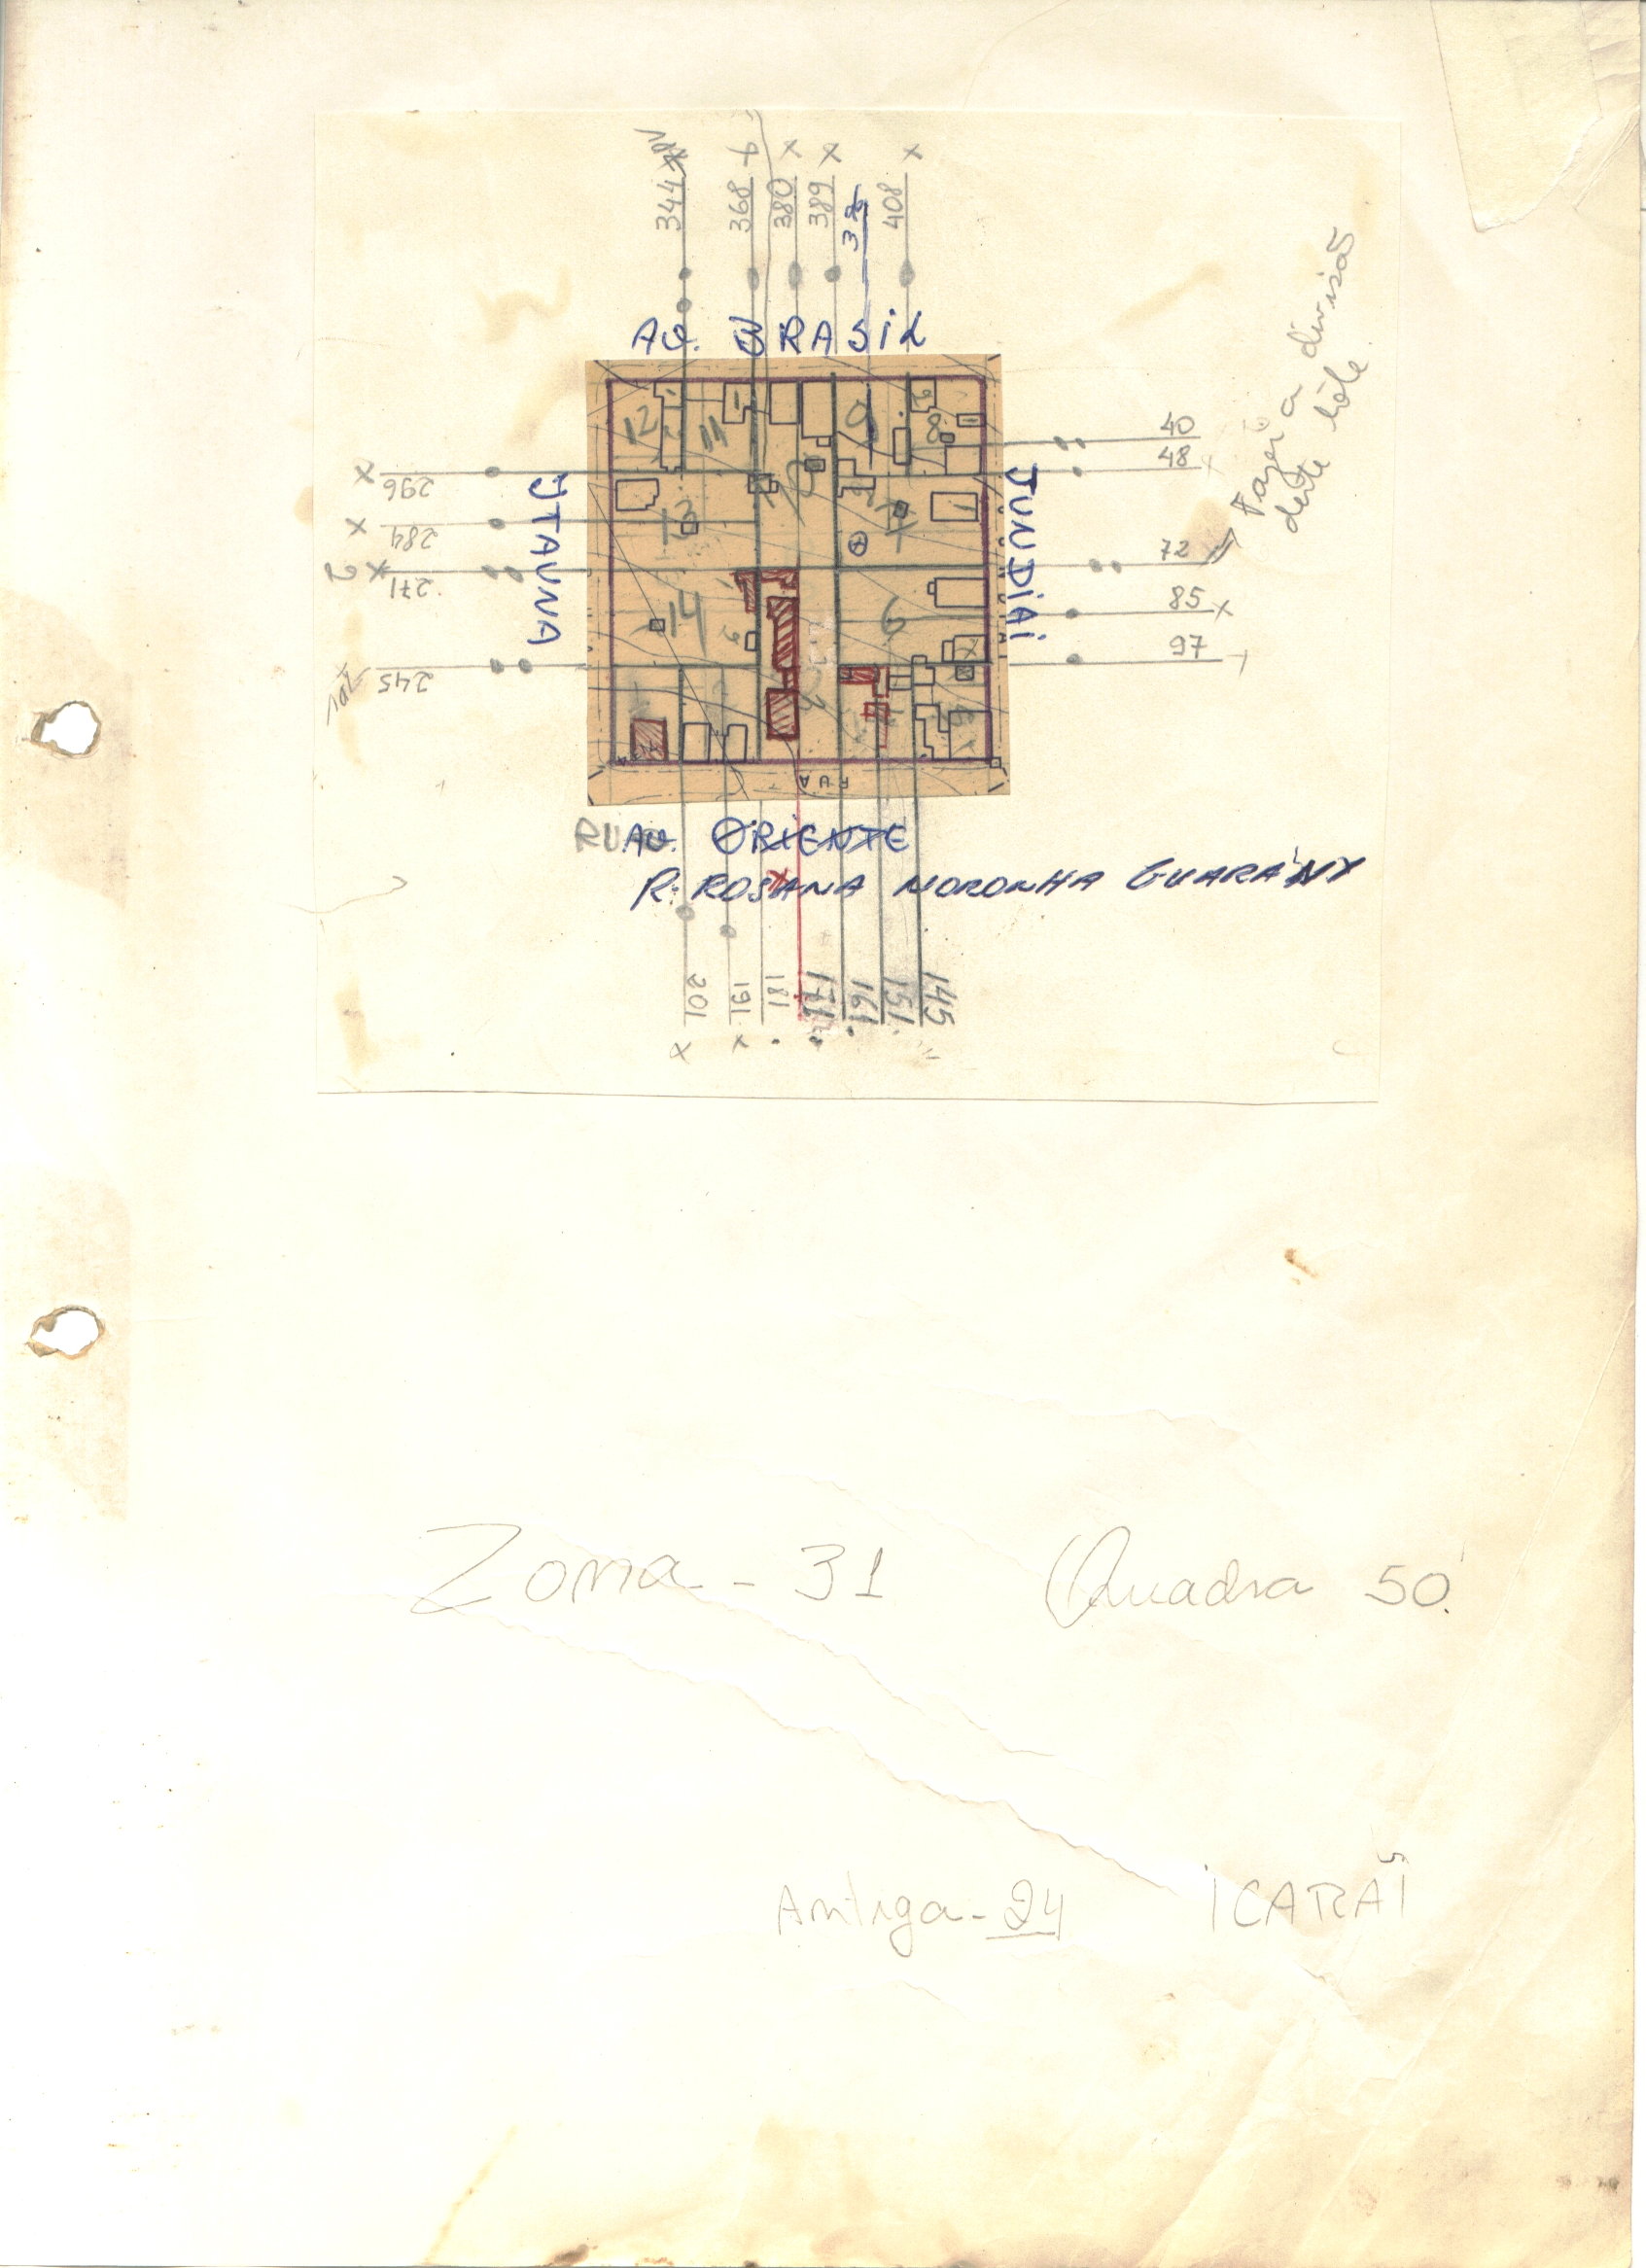 344
368
380
389
408
AV. BRASIL
40
48
72
85
97
Fazer a divisão
deste lote
296
284
271
2
245
ITAUNA
JUNDIAI
12
11
9
8
13
7
14
6
RUA
RUA
AV. ORIENTE
R. ROSANA NORONHA GUARÁNY
201
191
181
171
161
151
145
Zona - 31 Quadra 50.
Antiga - 24 ICARAÍ